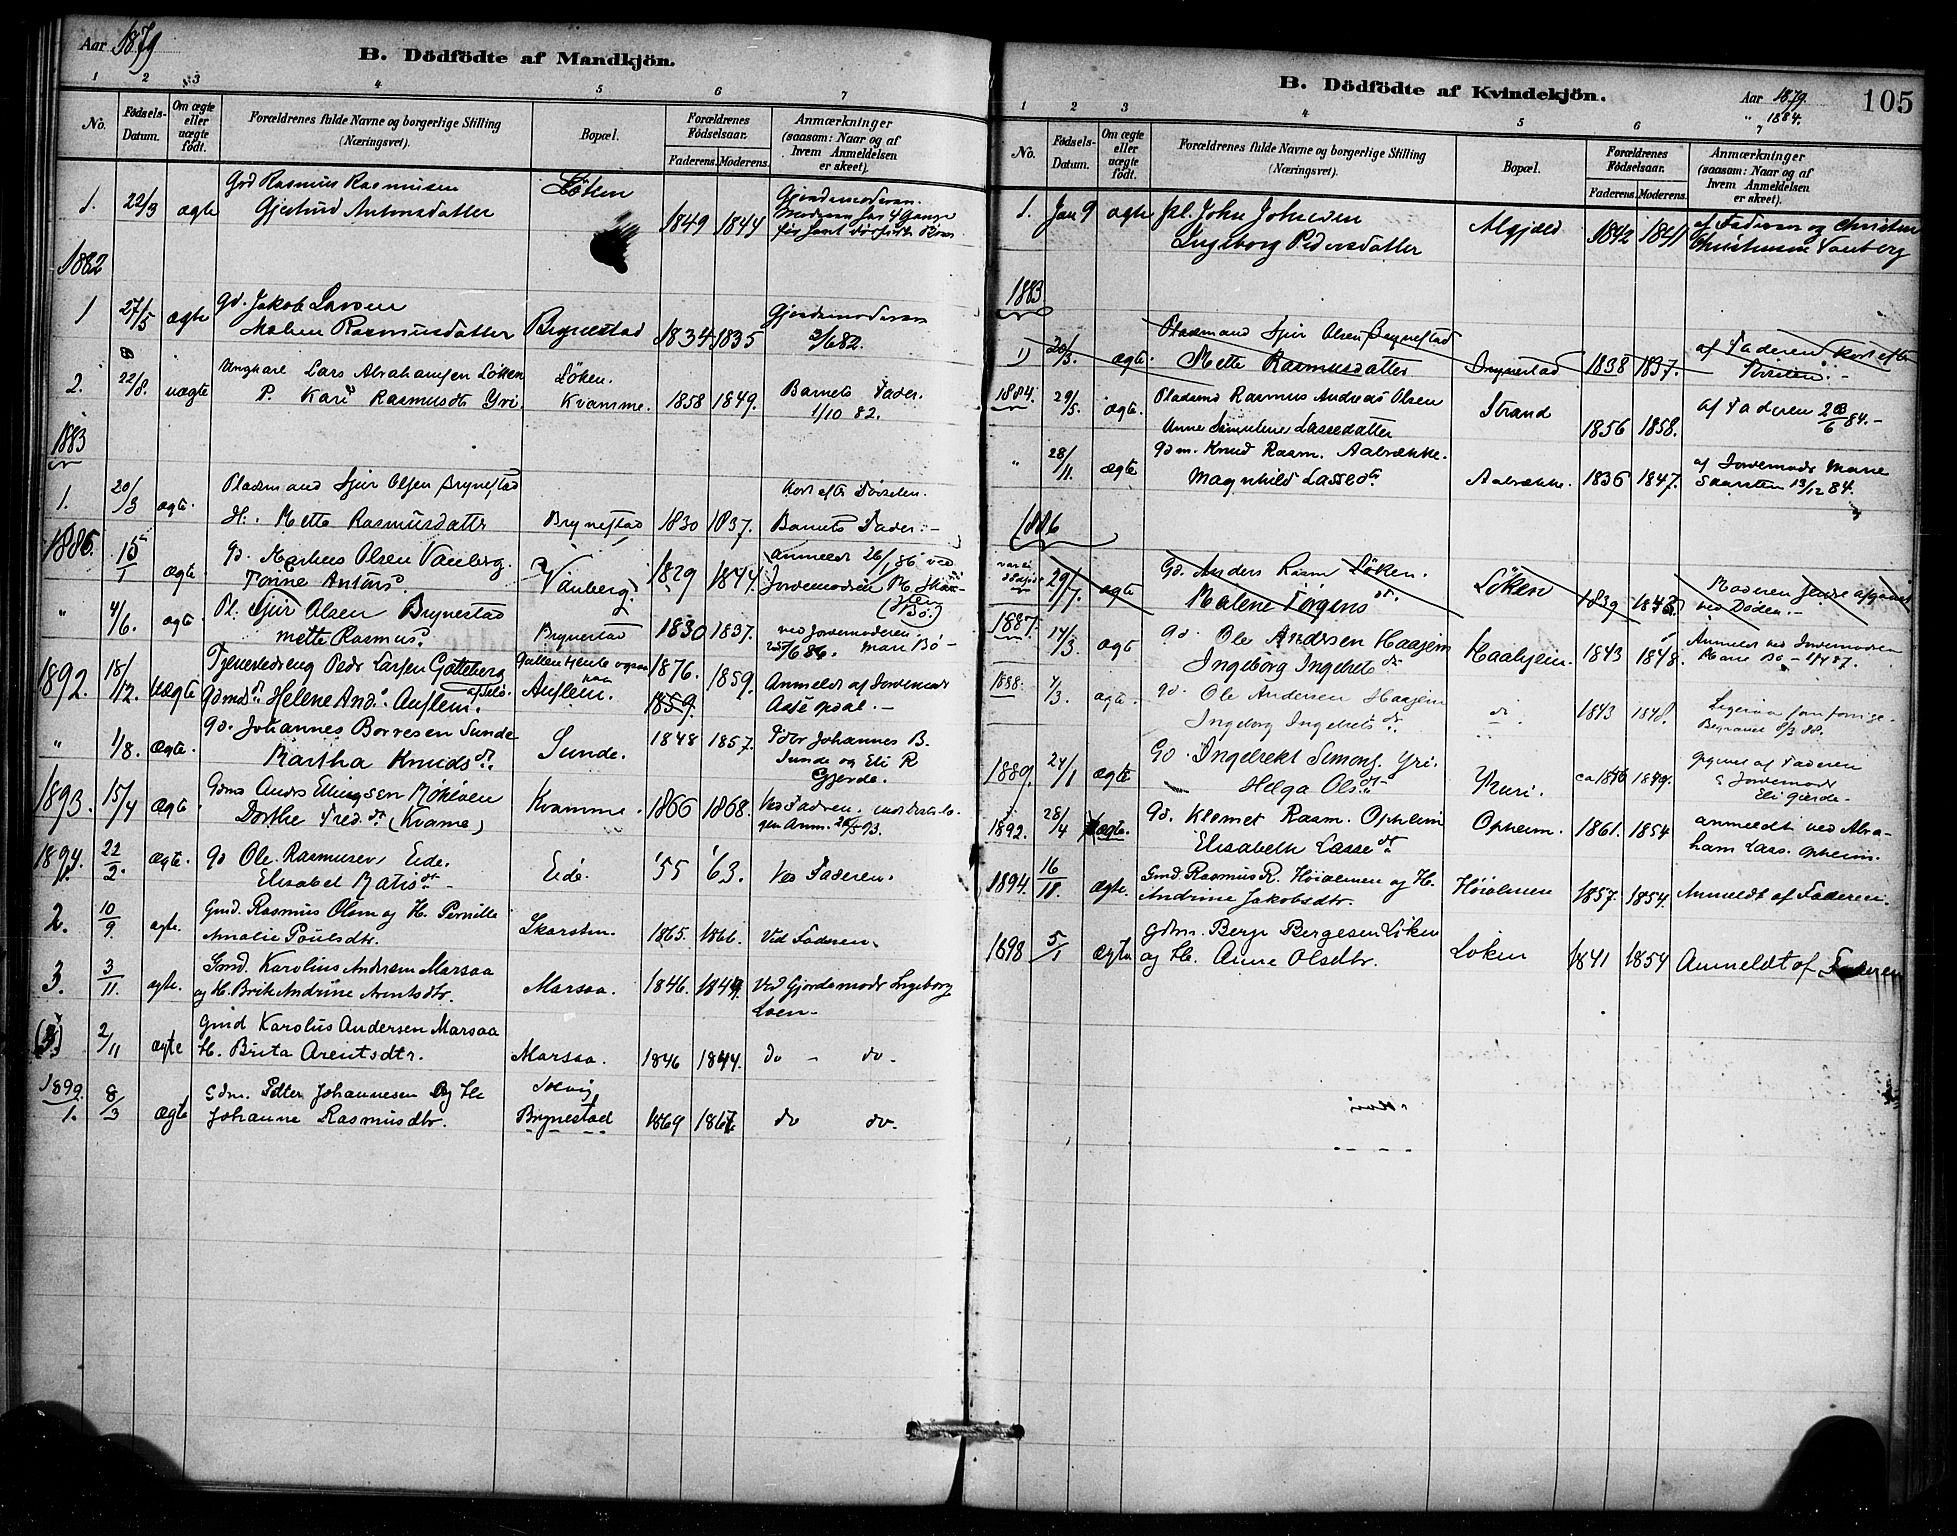 Aar 1879
B. Dödfödte af Mandkjön.
1 2 3 4 5 6 7
No.
Födsels-Datum.
Om ægte eller uægte födt.
Forældrenes fulde Navne og borgerlige Stilling (Næringsvei).
Bopæl.
Forældrenes Födselsaar.
Faderens. Moderens.
Anmærkninger (saasom: Naar og af hvem Anmeldelsen er skeet).
1. 22/3 ægte Grd Rasmus Rasmusen Löken 1849 1844 Gjordemoderen.
Gjertrud Antonsdatter
Moderen har 4 Gange
1882
1 27/5 ægte Gd. Jakob Larsen
Malene Rasmusdatter Brynestad 1834 1835 Gjordemoderen
3/6 82.
2. 22/8. uægte Ungkarl Lars Abrahamsen Löken Löken.
P. Kari Rasmusdt Yri. Kvamme. 1858 1849. Barnets Fader.
1/10 82.
1883
1. 20/3 ægte. Pladsmand Sjur Olsen Brynestad Kort efter Fødselen.
H. Mette Rasmusdattr Brynestad 1830 1837. Barnets Fader.
1886. 15/1 ægte. Gd. Markus Olsen Vanberg.
Tonne Antons d. Vanberg. 1829 1844. Anmeldt 26/1 86 ved
Jordemoderen M.
Bö.
" 4/6. ægte Pl. Sjur Olsen Brynestad
Mette Rasmus d. Brynestad 1830 1837. ved Jordemoderen
Mari Bö
1892. 18/12. Uægte Tjenestedreng Pedr Larsen Götteberg 1876. 1859. Anmeldt af Jordemodr
Gdmdr. Helene And. Auflem. Auflem. 1859. Aase Opdal.
" 1/8. ægte. Gd. Johannes Borresen Sunde Sunde. 1848 1857. Fdbr Johannes B.
Martha Knuds dr. Sunde og Eli R
Gjerde.
1893. 15/4 ægte Gdms Anders Ellingsen Mölöen Kvamme. 1866 1868. Ved Faderen.
Dorthe Fred. dr (Kvame)
1894. 22/2. ægte. Gd Ole Rasmusen Eide. Eide. '55 '63. Ved Faderen.
Elisabet Matis dr
2. 10/9 ægte. Gmd. Rasmus Olsen og H. Pernille Skarsten. 1865. 1866. Ved Faderen.
Amalie Poulsdtr.
3. 3/11. ægte. Gmd. Karolius Andersen Marsaa Marsaa. 1846. 1844. Ved Gjordemodr Ingeborg
og H. Brit Andrine Arentsdtr. Loen
(3) 2/11 ægte Gmd Karolus Andersen Marsaa
H. Brita Arentsdtr. Marsaa. 1846 1844. do - do.
1899. 1. 8/3 ægte Gdm. Petter Johannesen og H.
Johanne Rasmusdtr. Brynestad 1869 1867 do do.
B. Dödfödte af Kvindekjön.
Aar 1879.
" 1884.
105
1 2 3 4 5 6 7
No.
Födsels-Datum.
Om ægte eller uægte födt.
Forældrenes fulde Navne og borgerlige Stilling (Næringsvei).
Bopæl.
Forældrenes Födselsaar.
Faderens. Moderens.
Anmærkninger (saasom: Naar og af hvem Anmeldelsen er skeet).
1. Jan 9 ægte pl. John Johnsen
Ingeborg Pedersdatter Melgjeld 1842 1841 af Faderen og Christen
Christensen Vanberg
1883
1) 20/3. ægte. Pladsmand Sjur Olsen Brynestad
Mette Rasmusdatter Brynestad 1838 1837. af Faderen kort efter
1884. 29/5. ægte. Pladsmd Rasmus Andreas Olsen Strand 1856 1858. af Faderen 28/6 84.
Anne Lassedatter
" 28/11. ægte Gdm. Knud Rasm. Aabrække.
Magnhild Lasse dtr Aabrække. 1836 1847. af Jordemodr Marie
Skarsten 13/12 84.
1886
29/7. ægte Gd. Anders Rasm Löken. Löken 1839
Malene Jørgens dr. ved Døden.
1887. 14/3. ægte Gd. Ole Andersen Haahjem Haahjem. 1843 1848. Anmeldt ved Jordemoderen
Ingeborg Ingebrets dr. Marie Bö
1888. 4/3. ægte. Gd. Ole Andersen Haahjem do. 1843 1848.
Ingeborg Ingebrets dr. Begravet
1889. 24/1 ægte Gd. Ingebrekt Simons. Yri. Yuri. ca 1846 1849. Opgivet af Faderen
Helga Ols dtr & Jordemodr
Eli Gjerde
1892. 28/4 ægte. Gd. Klemet Rasm. Opheim Opheim. 1861. 1854 Anmeldt ved Abra-
Elisabeth Lasse dr. ham Lass. Opheim.
1894. 16/18. ægte. Gmd. Rasmus R. Höialmen og H. Höialmen 1857. 1854. Anmeldt af Faderen.
Andrine Jakobsdtr.
1898 5/1 ægte Gdm. Berge Bergesen Löken
og H. Anne Olsdtr. Löken 1841 1854 Anmeldt af Faderen